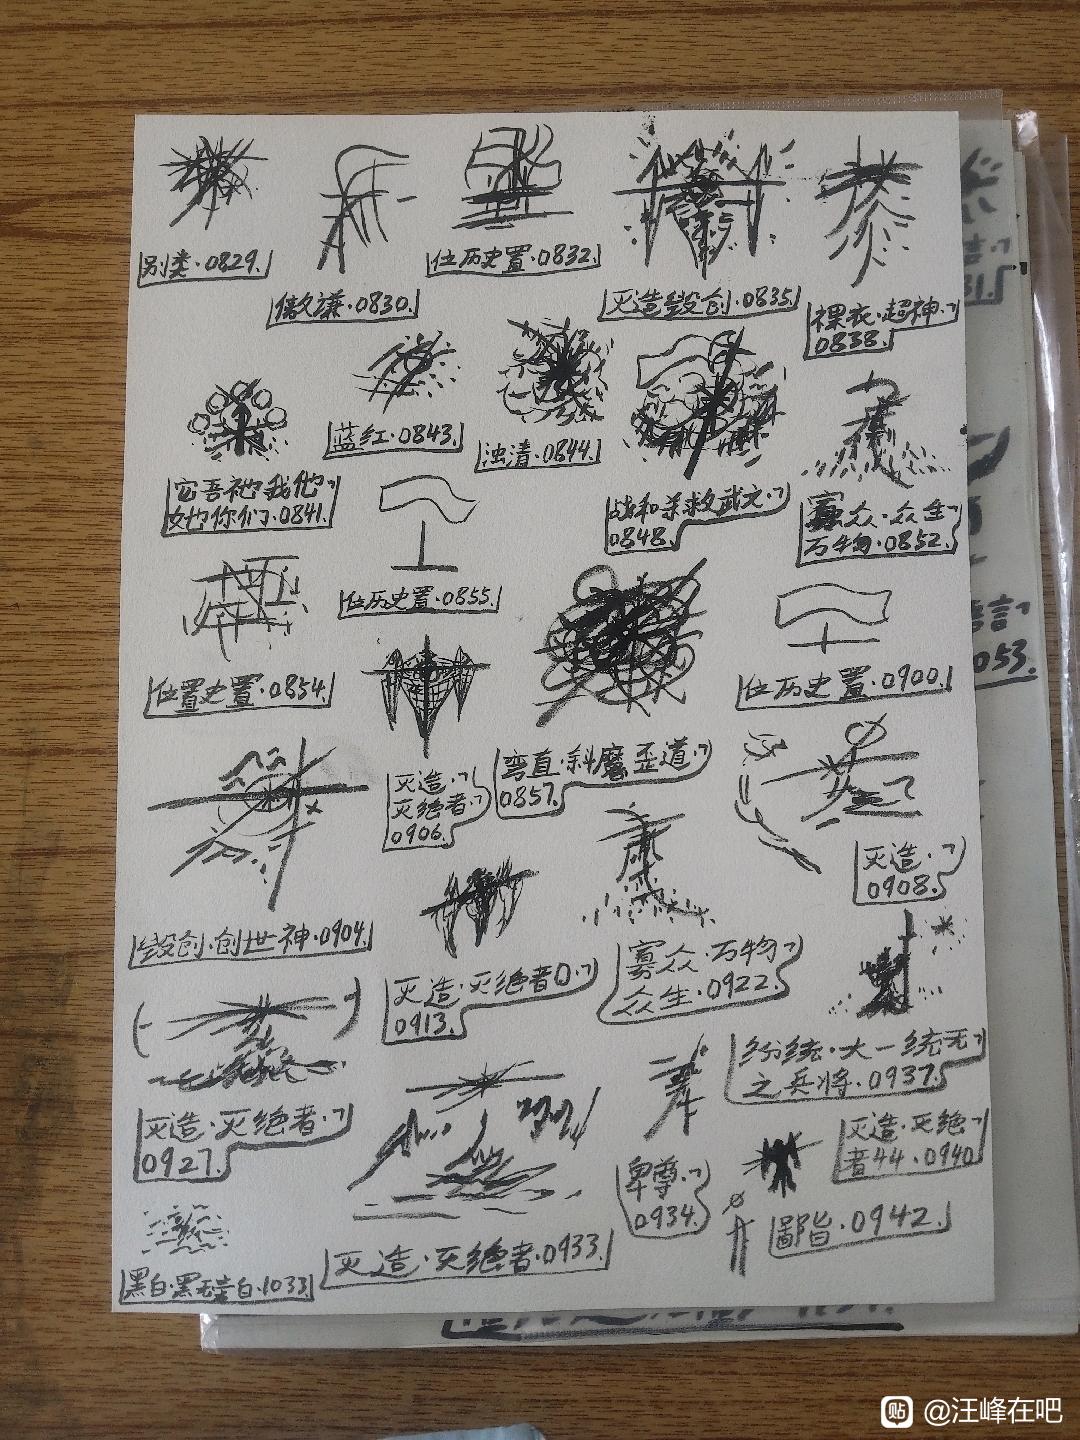 别类·0829.
傲谦·0830.
位历史置·0832.
灭造毁创·0835.
裸衣·超神·
0838.
它吾祂我他
她你们·0841.
蓝红·0843.
浊清·0844.
战和杀救武文·
0848.
寡众·众生
万物·0852.
位置史置·0854.
位历史置·0855.
弯直·斜魔歪道·
0857.
位历史置·0900.
毁创·创世神·0904.
灭造·
灭绝者·
0906.
灭造·
0908.
灭造·灭绝者
0913.
寡众·万物
众生·0922.
灭造·灭绝者·
0927.
灭造·灭绝者·0933.
卑尊·
0934.
纷统·大一统无
之兵将·0937.
灭造·灭绝
者44·0940.
鄙皆·0942.
黑白·1033.
053.
@汪峰在吧